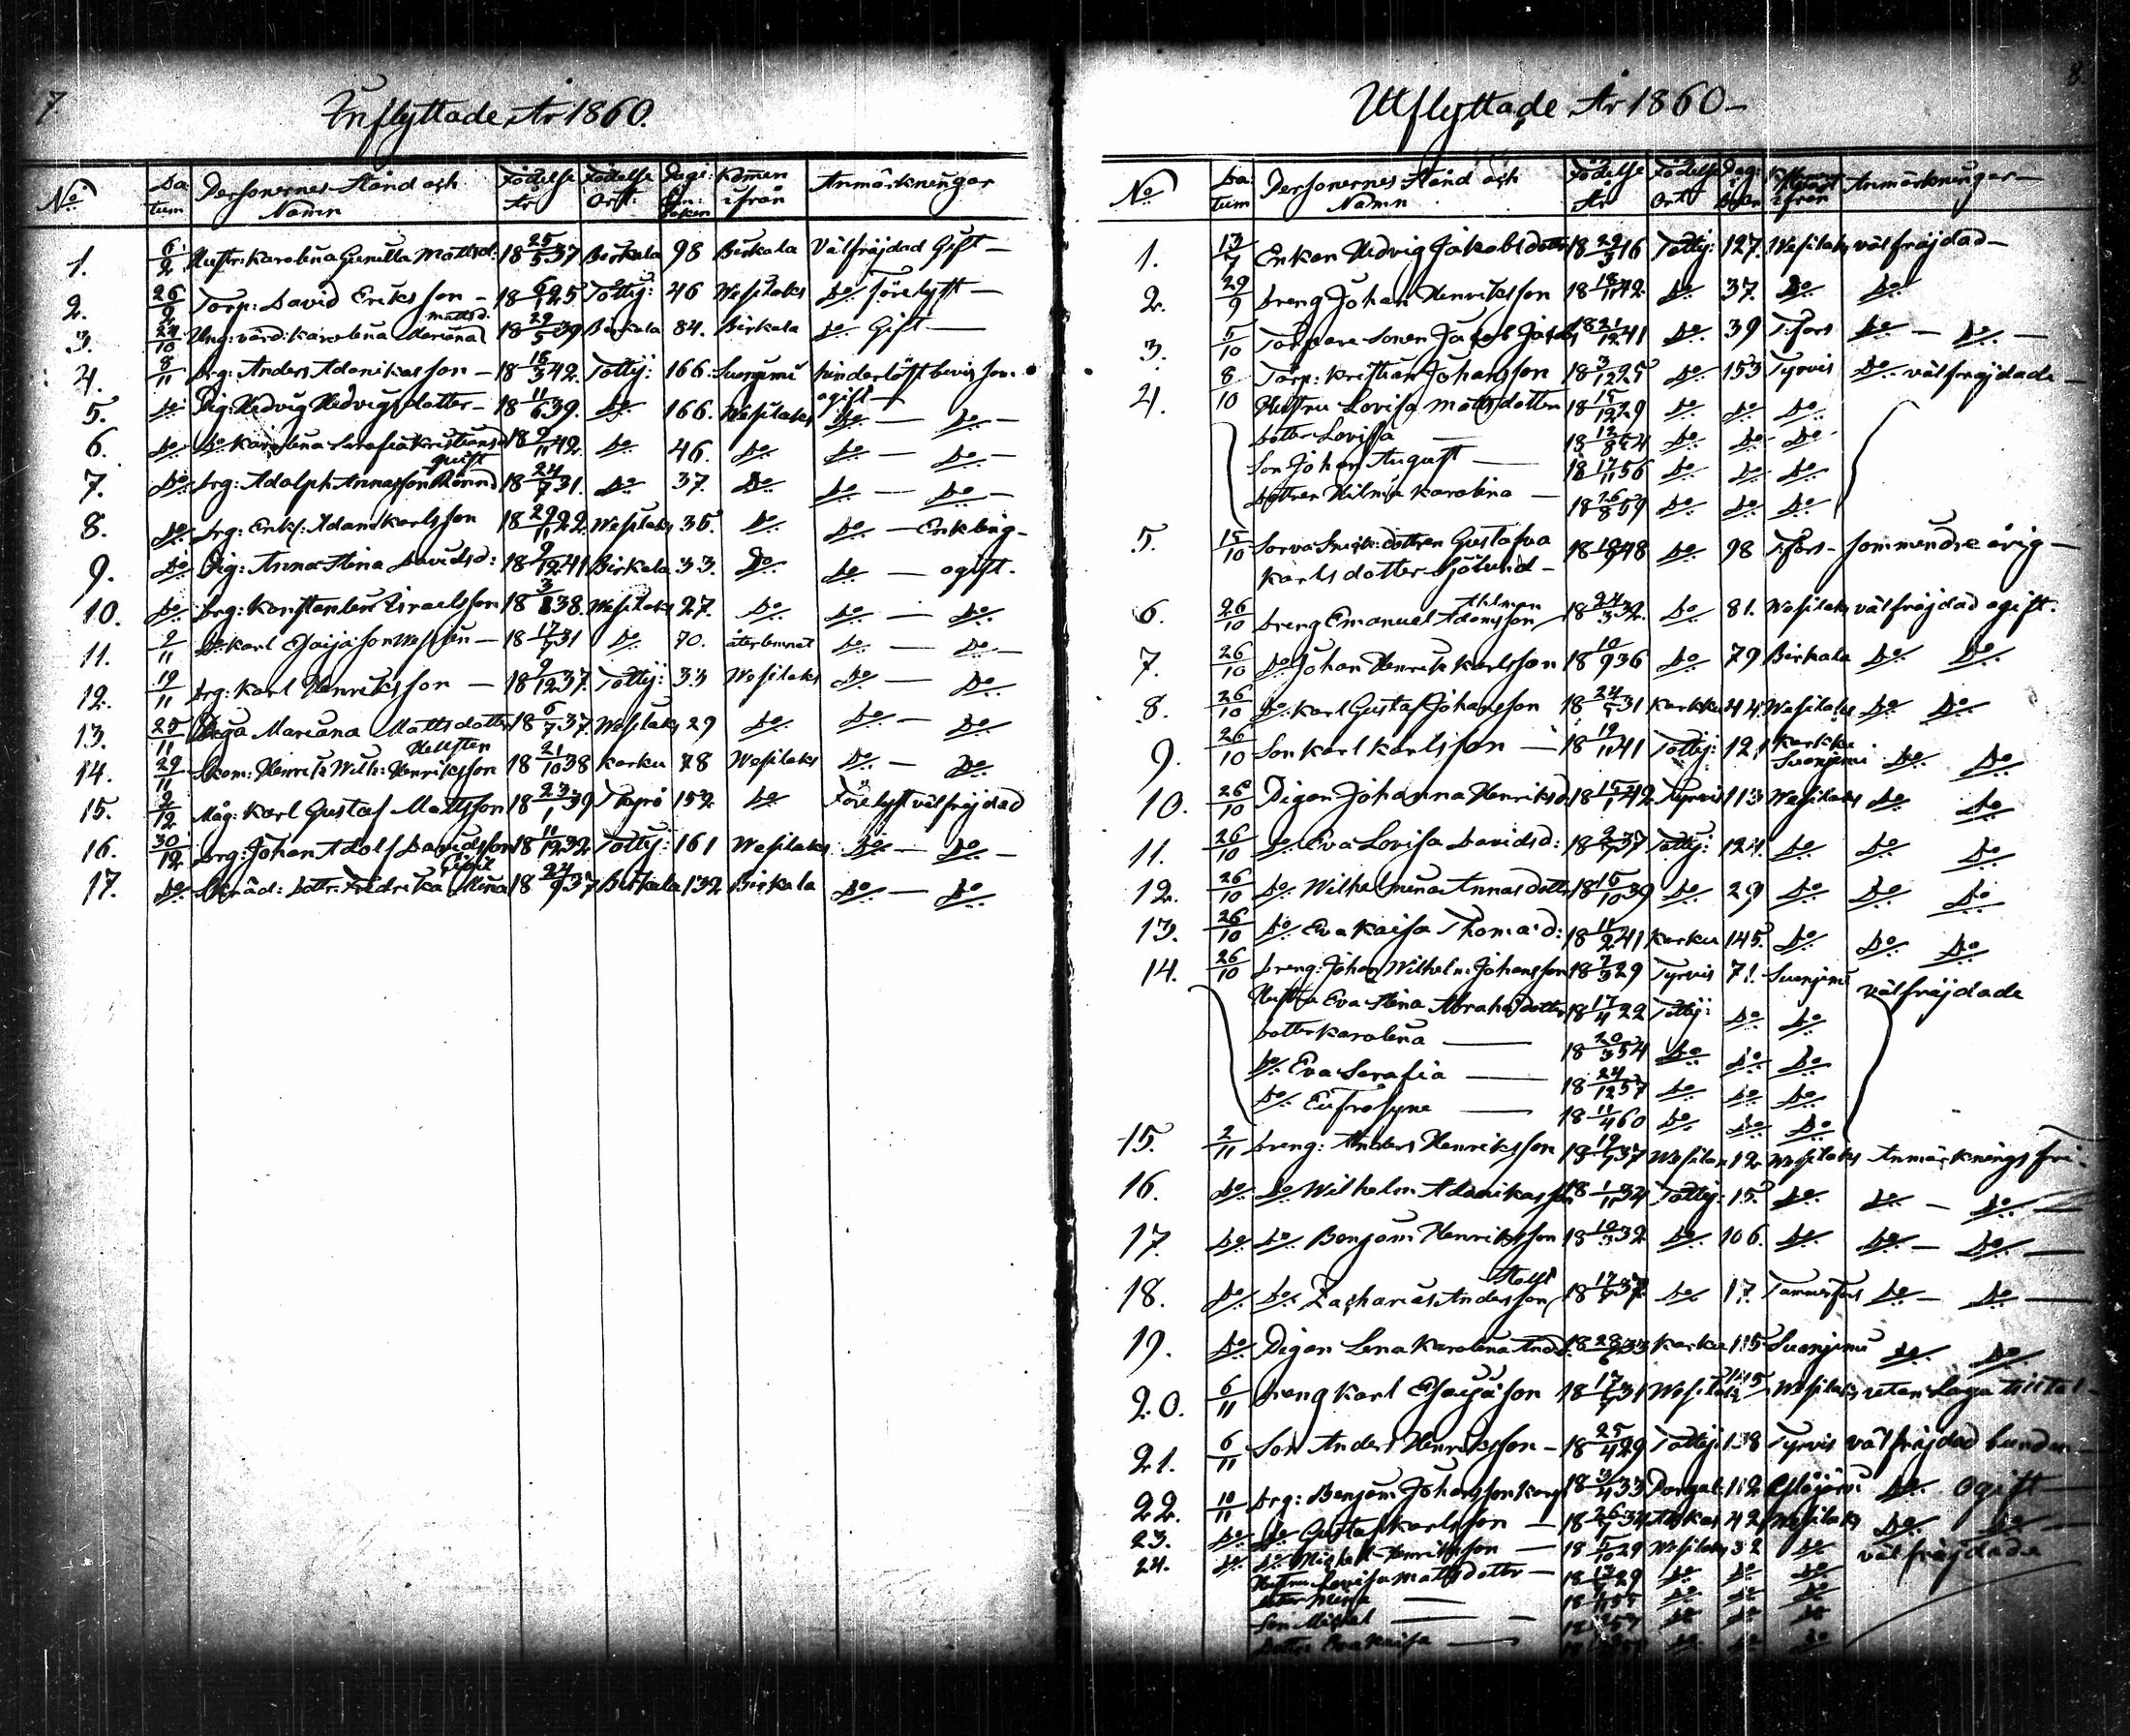 7
Inflyttade År 1860.
No Datum Personernes Stånd och Namn Födelse År Födelse Ort: Pagi: Komen ifrån Anmärkningar
1. 6/2 Hustr: Karolina Gunilla Mattsd: 18 25/5 37 Birkala 98 Birkala Välfräjdad Gift —
2. 26/2 Torp: David Eriksson — 18 125 Tottij: 46 Wesilaks Do förelyft —
3. 24/10 Ung: värd: Karolina Mariana Mattsd. 18 29/5 39 Birkala 84. Birkala Do Gift —
4. 8/11 Drg: Anders Adamikasson — 18 18/3 42. Tottij: 166. Suonjemi hinderlöst bevis som ogift —
5. Do Pig: Hedvig Hedvigsdotter — 18 11/6 39. Do 166. Wesilaks Do — Do —
6. Do Do Karolina Serafia Kristiansd 18 9/11 42 Do 46. Do Do — Do —
7. Do Drg: Adolph Annasson 18 24/7 31. Do 37. Do Do — Do —
8. Do Drg: Enkl: Adam Karlsson 18 29/11 22. Wesilaks 35. Do Do — Enkling —
9. Do Pig: Anna Stina Davidsd: 18 9/12 41 Birkala 33. Do Do — ogift.
10. Do Drg: Konstantin Israelsson 18 3/8 38. Wesilaks 27. Do Do — Do
11. 2/11 Do Karl Esaijason — 18 17/7 31 Do 70. återlemnat Do — Do —
12. 19/11 Drg: Karl Henriksson — 18 9/12 37. Tottij: 33 Wesilaks Do — Do
13. 25/11 Piga Mariana Mattsdotter 18 6/7 37 Wesilaks 29 Do Do — Do
14. 29/11 Skom: Henrik Wilh: Henriksson Hellsten 18 21/10 38 Karku 78 Wesilaks Do — Do
15. 2/12 Måg: Karl Gustaf Mattsson 18 23/1 39 Thyrö 152 Do Förelyft välfräjdad
16. 30/12 Drg: Johan Adolf Davidsson 18 11/12 32 Tottij: 161 Wesilaks Do — Do —
17. Do Dottr: Fredrika Mina 18 24/9 37 Birkala 132 Birkala Do — Do
8
Utflyttade År 1860 —
No Datum Personernes Stånd och Namn Födelse År Födelse Ort ifrån Anmärkningar —
1. 13/7 Enkan Hedvig Jakobsdotter 18 29/3 16 Tottij: 127. Wesilaks välfräjdad —
2. 29/9 Dreng Johan Henriksson 18 18/11 42. Do 37. Do Do
3. 5/10 Torpare Sonen Jakob 18 21/12 41 Do 39 T:fors Do — Do —
4. 8/10 Torp: Kristian Johansson 18 3/12 25 Do 153 Tyrvis Do välfräjdade —
Hustru Lovisa Mattsdotter 18 15/12 29 Do Do Do
Dotter Lovisa — 18 12/8 54 Do Do Do
Son Johan August — 18 17/11 56 Do Do Do
Dottren Hilma Karolina — 18 26/8 59 Do Do Do
5. 15/10 dottren Gustafva Karlsdotter Sjölund — 18 48 Do 98 T:fors — som mindre årig —
6. 26/10 Dreng Emanuel Adamsson Ahlman 18 24/3 32. Do 81. Wesilaks välfräjdad ogift.
7. 26/10 Do Johan Henrik Karlsson 18 10/9 36 Do 79 Birkala Do Do
8. 26/10 Do Karl Gustaf Johansson 18 24/7 31 Karkku 44 Wesilaks Do Do
9. 26/10 Son Karl Karlsson — 18 19/11 41 Tottij: 121 Karkku Suonjemi Do Do
10. 26/10 Pigan Johanna Henriksd 18 15/1 42 Tyrvis 113 Wesilaks Do Do
11. 26/10 Do Eva Lovisa Davidsd: 18 2/7 37 Tottij: 124. Do Do Do
12. 26/10 Do Wilhelmina Annasdotter 18 15/10 39 Do 29 Do Do Do
13. 26/10 Do Eva Kaisa Thomasd: 18 11/2 41 Karku 145. Do Do Do
14. 26/10 Dreng: Johan Wilhelm Johansson 18 7/3 29 Tyrvis 71. Suonjemi välfräjdade
Hustru Eva Stina Abrahamsdotter 18 17/4 22 Tottij: Do Do
Dotter Karolina — 18 20/3 54 Do Do Do
Do Eva Serafia — 18 24/12 57 Do Do Do
Do Eufrosyne — 18 11/4 60 Do Do Do
15. 2/11 Dreng: Anders Henriksson 18 19/7 37 Wesilax 12 Wesilaks Anmärknings fri —
16. Do Do Wilhelm Adamikasson 18 1/11 34 Tottij: 15. Do Do — Do —
17 Do Do Benjam Henriksson 18 10/3 32 Do 106. Do Do — Do —
18. Do Do Zacharias Andersson 18 17/9 37. Do 17. Tammerfors Do — Do —
19. Do Pigan Lena Karolina Andd. 18 28/6 33 Karku 115 Suonjemi Do Do
20. 6/11 Dreng Karl Esaijason 18 17/7 31 Wesilaks Wesilaks utan laga
21. 6/11 Son Anders Henriksson — 18 25/4 29 Tottij: 138 Tyrvis välfräjdad bunden —
22. 10/11 Drg: Benjam Johansson 18 3/4 33 112 Do ogift —
23. Do Do Gustaf Karlsson — 18 26/7 34 42 Wesilaks Do Do —
24. Do Do Mickel Henriksson — 18 5/10 29 Wesilaks 32 Do välfräjdade
Hustru Lovisa Mattsdotter — 18 29 Do Do Do
Dotter — 18 55 Do Do Do
Son Mickel — 18 57 Do Do Do
Dotter Eva Kaisa — Do Do Do